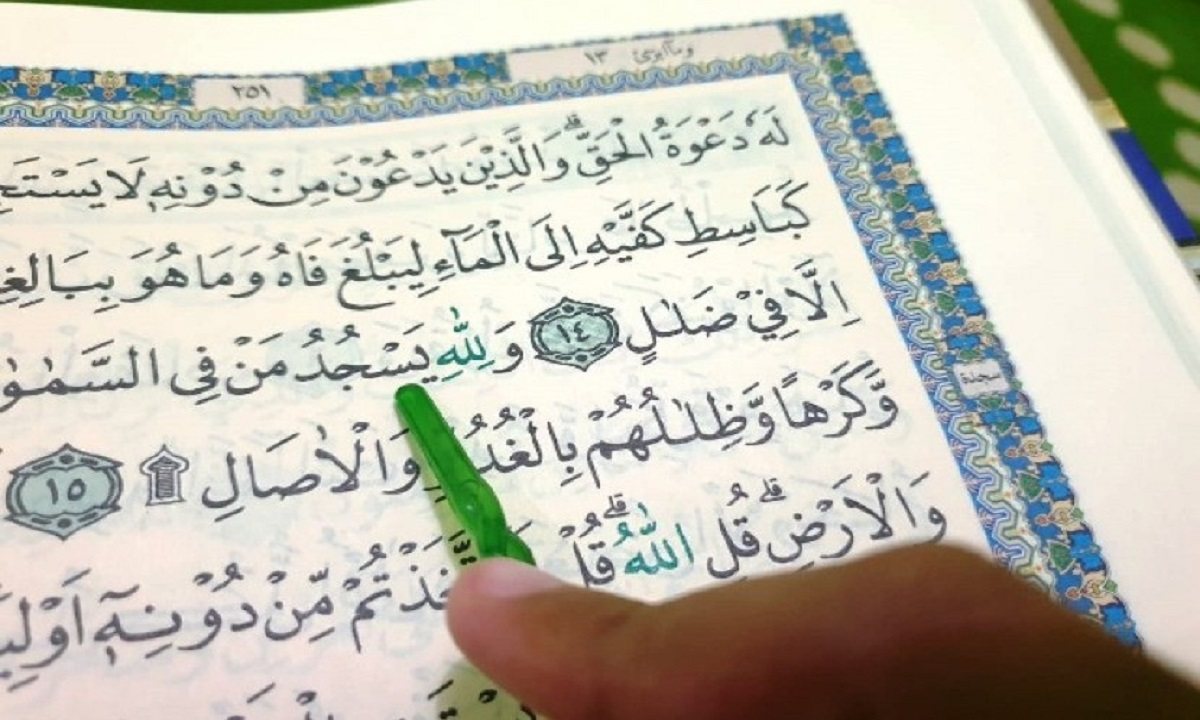 وماابرئ ١٣
٢٥١
لَهٗ دَعْوَةُ الْحَقِّۗ وَالَّذِيْنَ يَدْعُوْنَ مِنْ دُوْنِهٖ لَا يَسْتَجِ
كَبَاسِطِ كَفَّيْهِ اِلَى الْمَاۤءِ لِيَبْلُغَ فَاهُ وَمَا هُوَ بِبَالِغِهٖ
اِلَّا فِيْ ضَلٰلٍ ١٤ وَلِلّٰهِ يَسْجُدُ مَنْ فِى السَّمٰوٰ
وَّكَرْهًا وَّظِلٰلُهُمْ بِالْغُدُوِّ وَالْاٰصَالِ ۩ ١٥
سجدة
وَالْاَرْضِۗ قُلِ اللّٰهُ ۗقُلْ اَفَاتَّخَذْتُمْ مِّنْ دُوْنِهٖٓ اَوْلِيَ